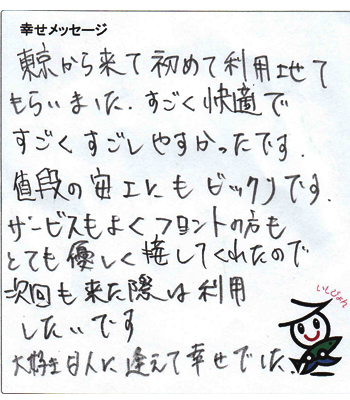 幸せメッセージ
東京から来て初めて利用させて
もらいました. すごく快適で
すごくすごしやすかったです.
値段の安さにもビックリです.
サービスもよくフロントの方も
とても優しく接してくれたので
次回も来た際は利用
したいです
大好きな人に逢えて幸せでした.